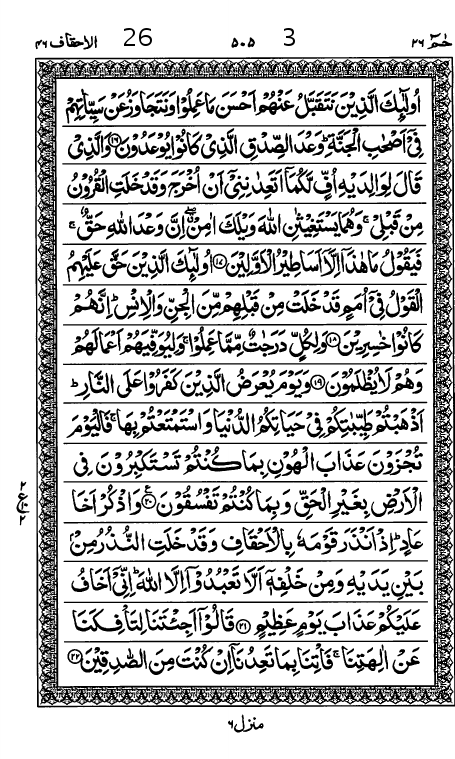 حٰمٓ ٢٦ 3 ٥٠٥ 26 الاحقاف ٤٦
اُولٰٓئِكَ الَّذِيْنَ نَتَقَبَّلُ عَنْهُمْ اَحْسَنَ مَا عَمِلُوْا وَنَتَجَاوَزُ عَنْ سَيِّاٰتِهِمْ
فِيْٓ اَصْحٰبِ الْجَنَّةِ ؕ وَعْدَ الصِّدْقِ الَّذِيْ كَانُوْا يُوْعَدُوْنَ ﴿١٦﴾ وَالَّذِيْ
قَالَ لِوَالِدَيْهِ اُفٍّ لَّكُمَاۤ اَتَعِدٰنِنِيْۤ اَنْ اُخْرَجَ وَقَدْ خَلَتِ الْقُرُوْنُ
مِنْ قَبْلِيْ ۚ وَهُمَا يَسْتَغِيْثٰنِ اللّٰهَ وَيْلَكَ اٰمِنْ ۖ اِنَّ وَعْدَ اللّٰهِ حَقٌّ ۚ
فَيَقُوْلُ مَا هٰذَاۤ اِلَّاۤ اَسَاطِيْرُ الْاَوَّلِيْنَ ﴿١٧﴾ اُولٰٓئِكَ الَّذِيْنَ حَقَّ عَلَيْهِمُ
الْقَوْلُ فِيْۤ اُمَمٍ قَدْ خَلَتْ مِنْ قَبْلِهِمْ مِّنَ الْجِنِّ وَالْاِنْسِ ؕ اِنَّهُمْ
كَانُوْا خٰسِرِيْنَ ﴿١٨﴾ وَلِكُلٍّ دَرَجٰتٌ مِّمَّا عَمِلُوْا ۚ وَلِيُوَفِّيَهُمْ اَعْمَالَهُمْ
وَهُمْ لَا يُظْلَمُوْنَ ﴿١٩﴾ وَيَوْمَ يُعْرَضُ الَّذِيْنَ كَفَرُوْا عَلَى النَّارِ ؕ
اَذْهَبْتُمْ طَيِّبٰتِكُمْ فِيْ حَيَاتِكُمُ الدُّنْيَا وَاسْتَمْتَعْتُمْ بِهَا ۚ فَالْيَوْمَ
تُجْزَوْنَ عَذَابَ الْهُوْنِ بِمَا كُنْتُمْ تَسْتَكْبِرُوْنَ فِي
الْاَرْضِ بِغَيْرِ الْحَقِّ وَبِمَا كُنْتُمْ تَفْسُقُوْنَ ﴿٢٠﴾ وَاذْكُرْ اَخَا
عَادٍ ؕ اِذْ اَنْذَرَ قَوْمَهٗ بِالْاَحْقَافِ وَقَدْ خَلَتِ النُّذُرُ مِنْۢ
بَيْنِ يَدَيْهِ وَمِنْ خَلْفِهٖۤ اَلَّا تَعْبُدُوْۤا اِلَّا اللّٰهَ ؕ اِنِّيْۤ اَخَافُ
عَلَيْكُمْ عَذَابَ يَوْمٍ عَظِيْمٍ ﴿٢١﴾ قَالُوْۤا اَجِئْتَنَا لِتَاْفِكَنَا
عَنْ اٰلِهَتِنَا ۚ فَاْتِنَا بِمَا تَعِدُنَاۤ اِنْ كُنْتَ مِنَ الصّٰدِقِيْنَ ﴿٢٢﴾
منزل ٦